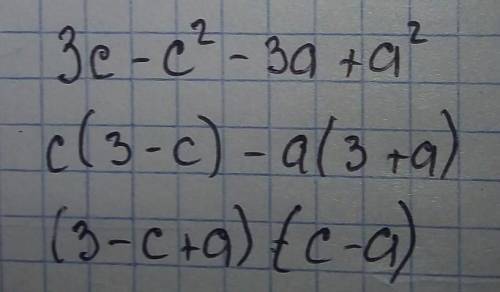 3c - c² - 3a + a²
c(3 - c) - a(3 + a)
(3 - c + a) - (c - a)